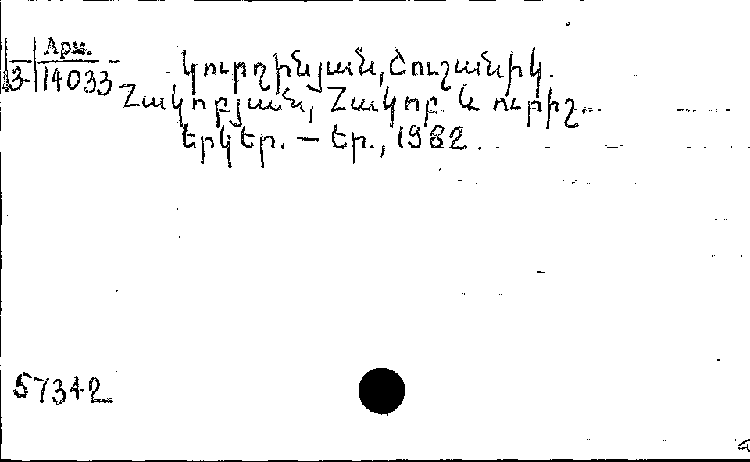 Արm.
3-14033
Կուրղինյան, Շուշանիկ.
Հակոբյան, Հակոբ և ուրիշ..
Երկեր. — Եր., 1982
57342